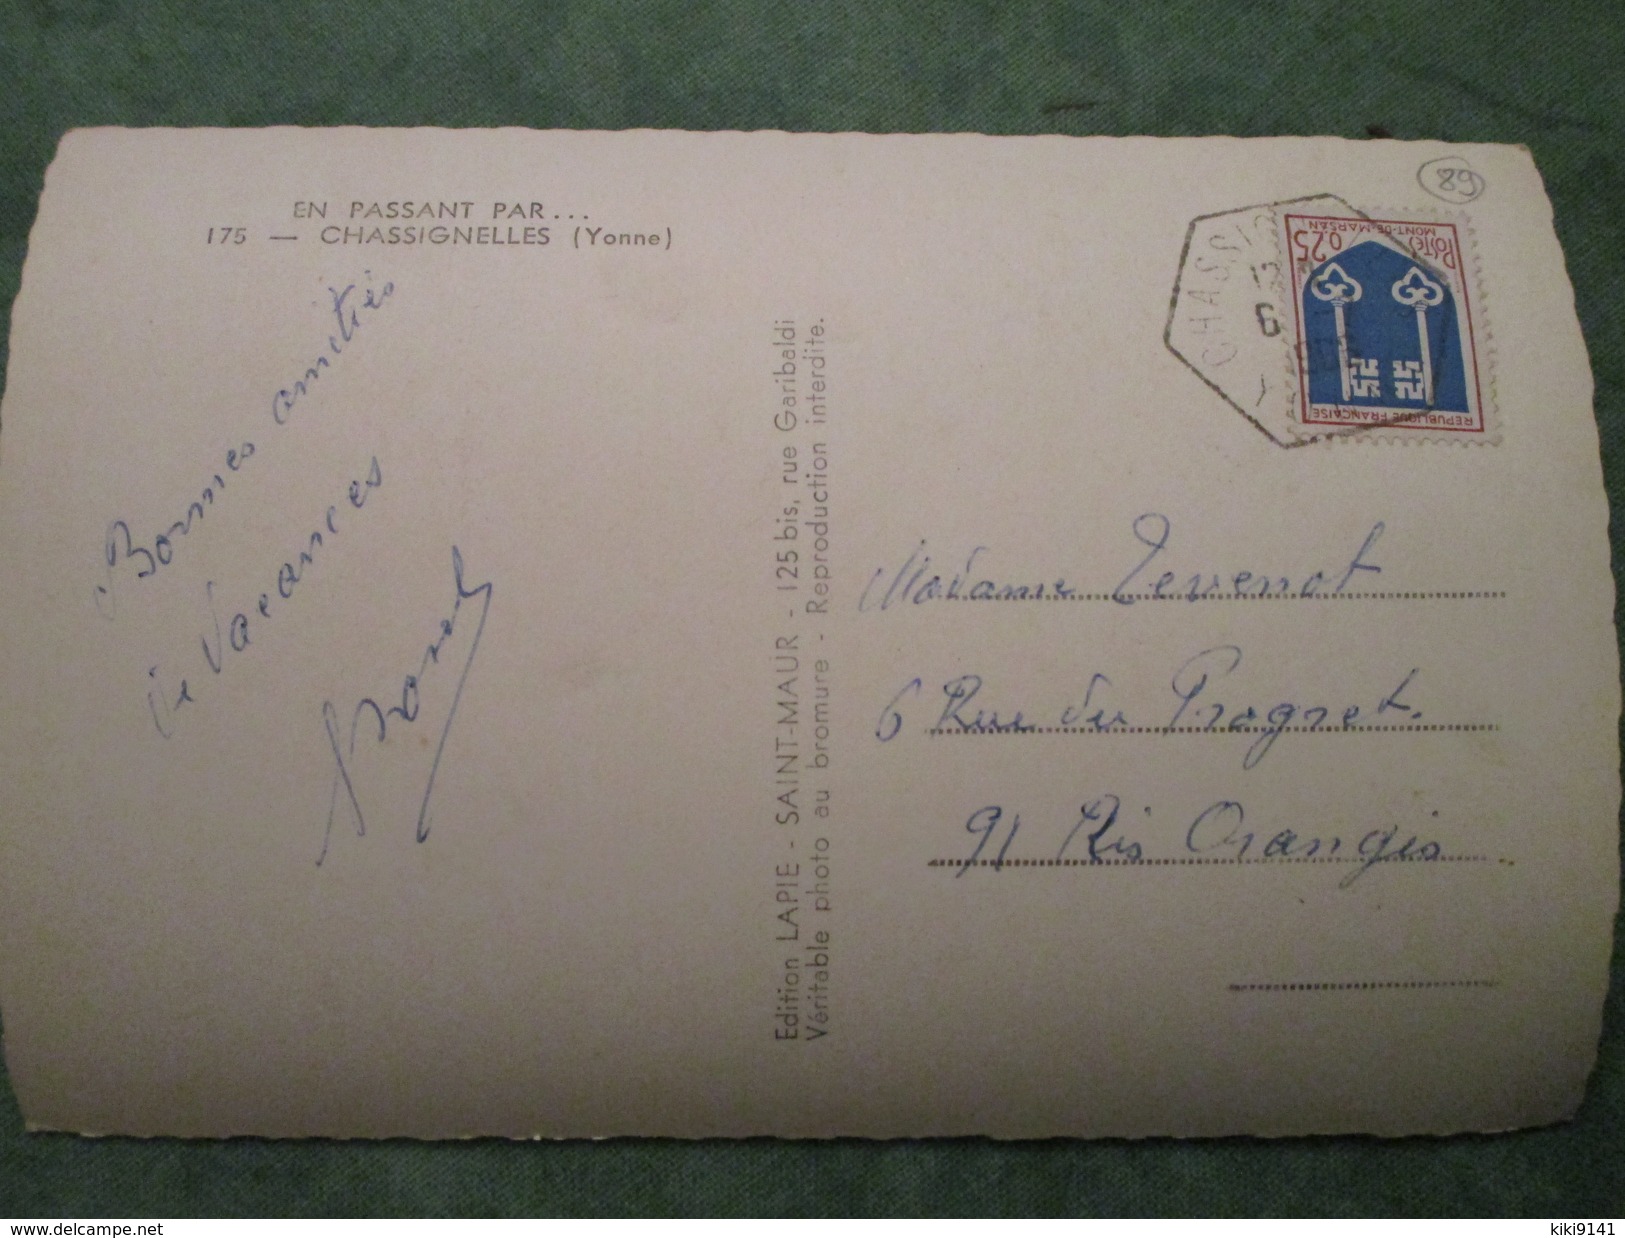 EN PASSANT PAR...
175 — CHASSIGNELLES (Yonne)
Bonnes amitiés
de Vacances
Edition LAPIE - SAINT-MAUR - 125 bis, rue Garibaldi
Véritable photo au bromure - Reproduction interdite.
89
CHASSIG
6
0.25
POSTES
MONT-DE-MARSAN
REPUBLIQUE FRANÇAISE
Madame Tevenot
6 Rue du Progret.
91 Ris Orangis
www.delcampe.net
kiki9141